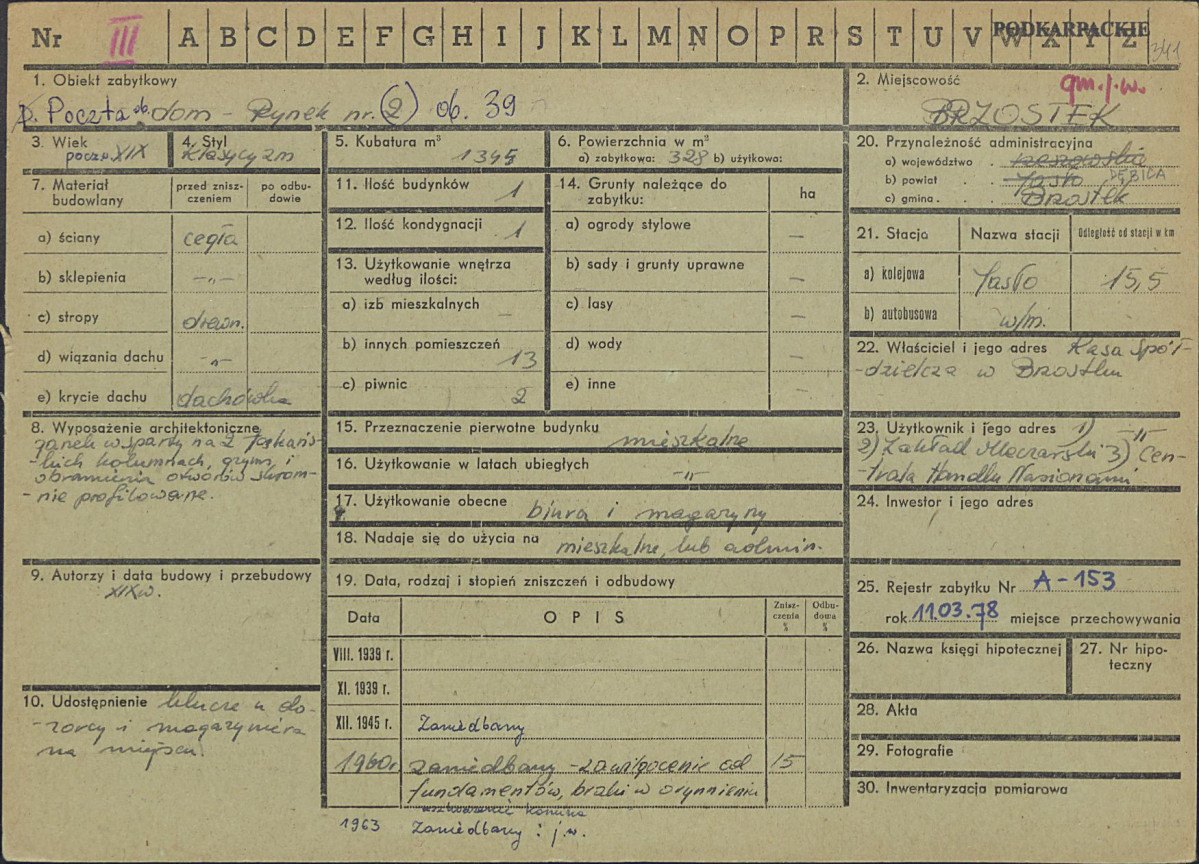 Nr III A B C D E F G H I J K L M N O P R S T U V W X Y Z
PODKARPACKIE
341
1. Obiekt zabytkowy
D. Poczta ob. dom - Rynek nr. (2) ob. 39
2. Miejscowość
gm. j.w.
BRZOSTEK
3. Wiek
pocz. XIX
4. Styl
klasycyzm
5. Kubatura m³
1345
6. Powierzchnia w m²
a) zabytkowa: 328 b) użytkowa:
7. Materiał budowlany
przed zniszczeniem
po odbudowie
a) ściany cegła
b) sklepienia -„-
c) stropy drewn.
d) wiązania dachu -„-
e) krycie dachu dachówka
8. Wyposażenie architektoniczne
ganek wsparty na 2 toskańs-
-kich kolumnach, gzyms i
obramienia otworów skrom-
-nie profilowane.
9. Autorzy i data budowy i przebudowy
XIX w.
10. Udostępnienie klucze u do-
-zorcy i magazyniera
na miejscu.
11. Ilość budynków 1
12. Ilość kondygnacji 1
13. Użytkowanie wnętrza
według ilości:
a) izb mieszkalnych -
b) innych pomieszczeń 13
c) piwnic 2
14. Grunty należące do
zabytku:
ha
a) ogrody stylowe -
b) sady i grunty uprawne -
c) lasy -
d) wody -
e) inne -
15. Przeznaczenie pierwotne budynku mieszkalne
16. Użytkowanie w latach ubiegłych -„-
17. Użytkowanie obecne biura i magazyny
18. Nadaje się do użycia na mieszkalne, lub admin.
19. Data, rodzaj i stopień zniszczeń i odbudowy
Data
OPIS
Zniszczenia %
Odbudowa %
VIII. 1939 r.
XI. 1939 r.
XII. 1945 r. Zaniedbany
1960r zaniedbany - zawilgocenie od 15
fundamentów, braki w orynnieniu
uszkodzenie komina
1963 Zaniedbany : j.w.
20. Przynależność administracyjna
a) województwo . rzeszowskie
b) powiat . . Jasło DĘBICA
c) gmina . . . Brzostek
21. Stacja
Nazwa stacji
Odległość od stacji w km
a) kolejowa Jasło 15,5
b) autobusowa w/m.
22. Właściciel i jego adres Kasa Spół-
-dzielcza w Brzostku
23. Użytkownik i jego adres 1) -„-
2) Zakład Mleczarski 3) Cen-
-trala Handlu Nasionami
24. Inwestor i jego adres
25. Rejestr zabytku Nr A-153
rok 11.03.78 miejsce przechowywania
26. Nazwa księgi hipotecznej
27. Nr hipo-
teczny
28. Akta
29. Fotografie
30. Inwentaryzacja pomiarowa